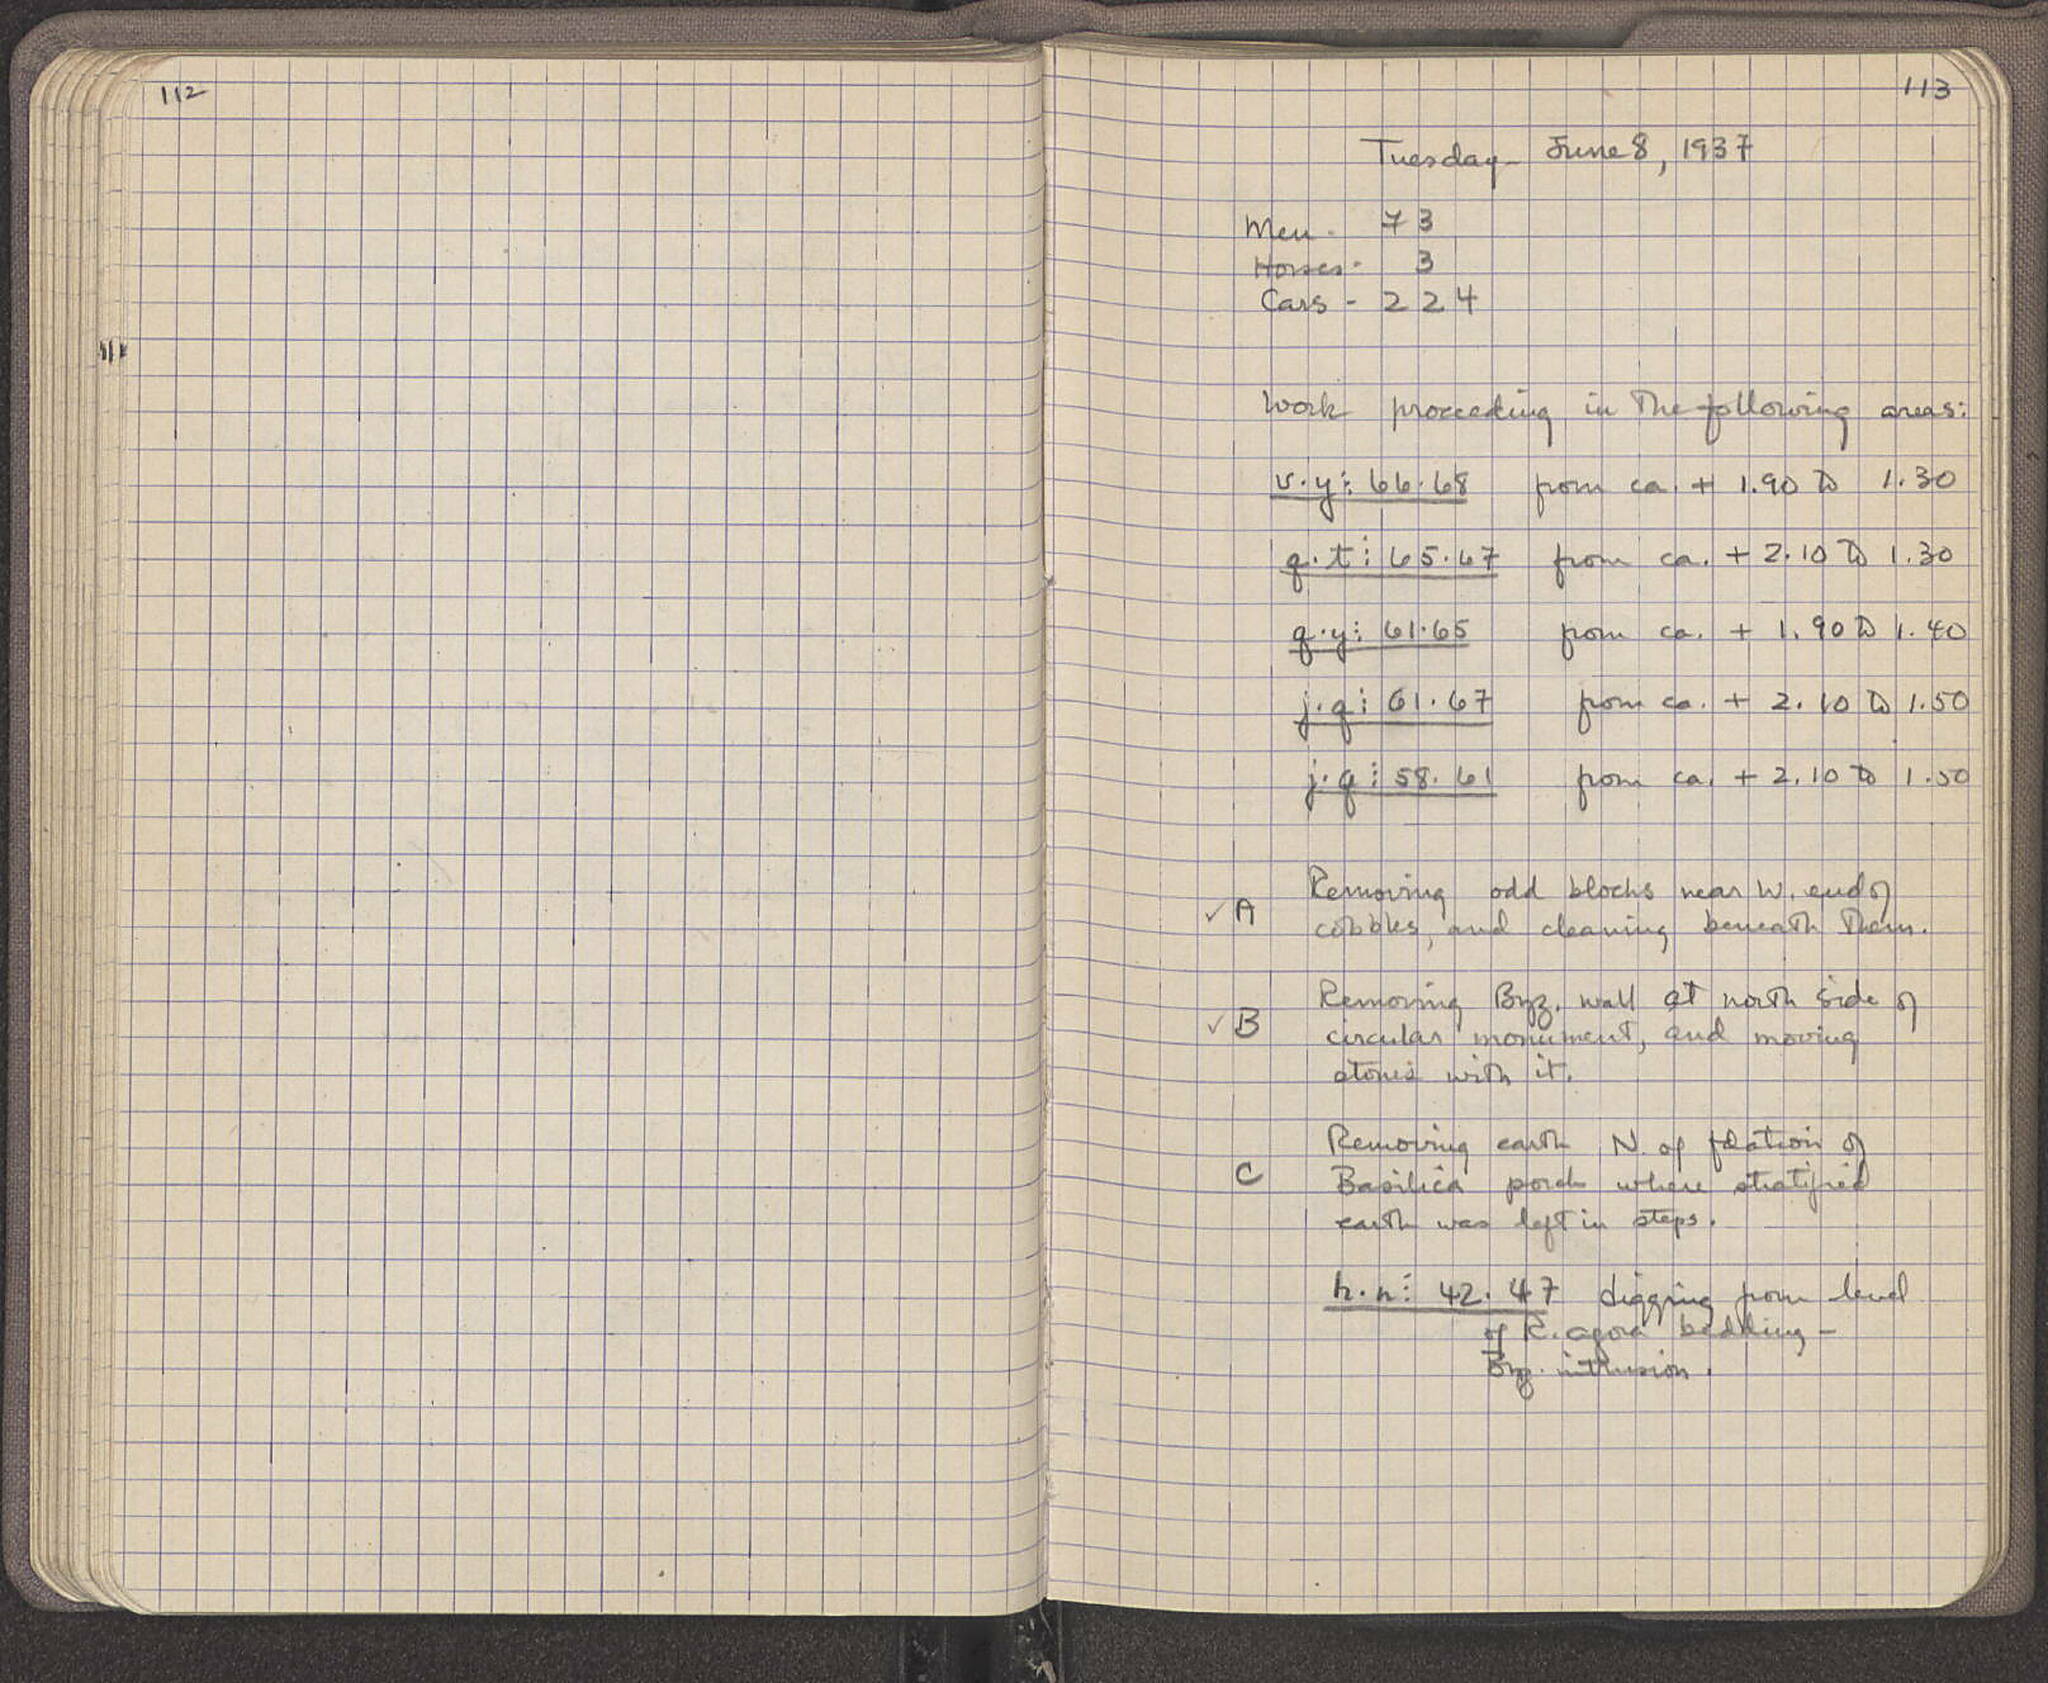 112
113
Tuesday - June 8, 1937
Men - 73
Horses - 3
Cars - 224
Work proceeding in the following areas:
v.y: 66.68 from ca. + 1.90 to 1.30
q.t: 65.67 from ca. + 2.10 to 1.30
q.y: 61.65 from ca. + 1.90 to 1.40
j.q: 61.67 from ca. + 2.10 to 1.50
j.q: 58.61 from ca. + 2.10 to 1.50
Removing odd blocks near W. end of
✓ A cobbles, and cleaning beneath them.
Removing Byz. wall at north side of
✓ B circular monument, and moving
stones with it.
Removing earth N. of fdation of
C Basilica porch where stratified
earth was left in steps.
h.n: 42.47 digging from level
of R. agora bedding -
Byz. intrusion.